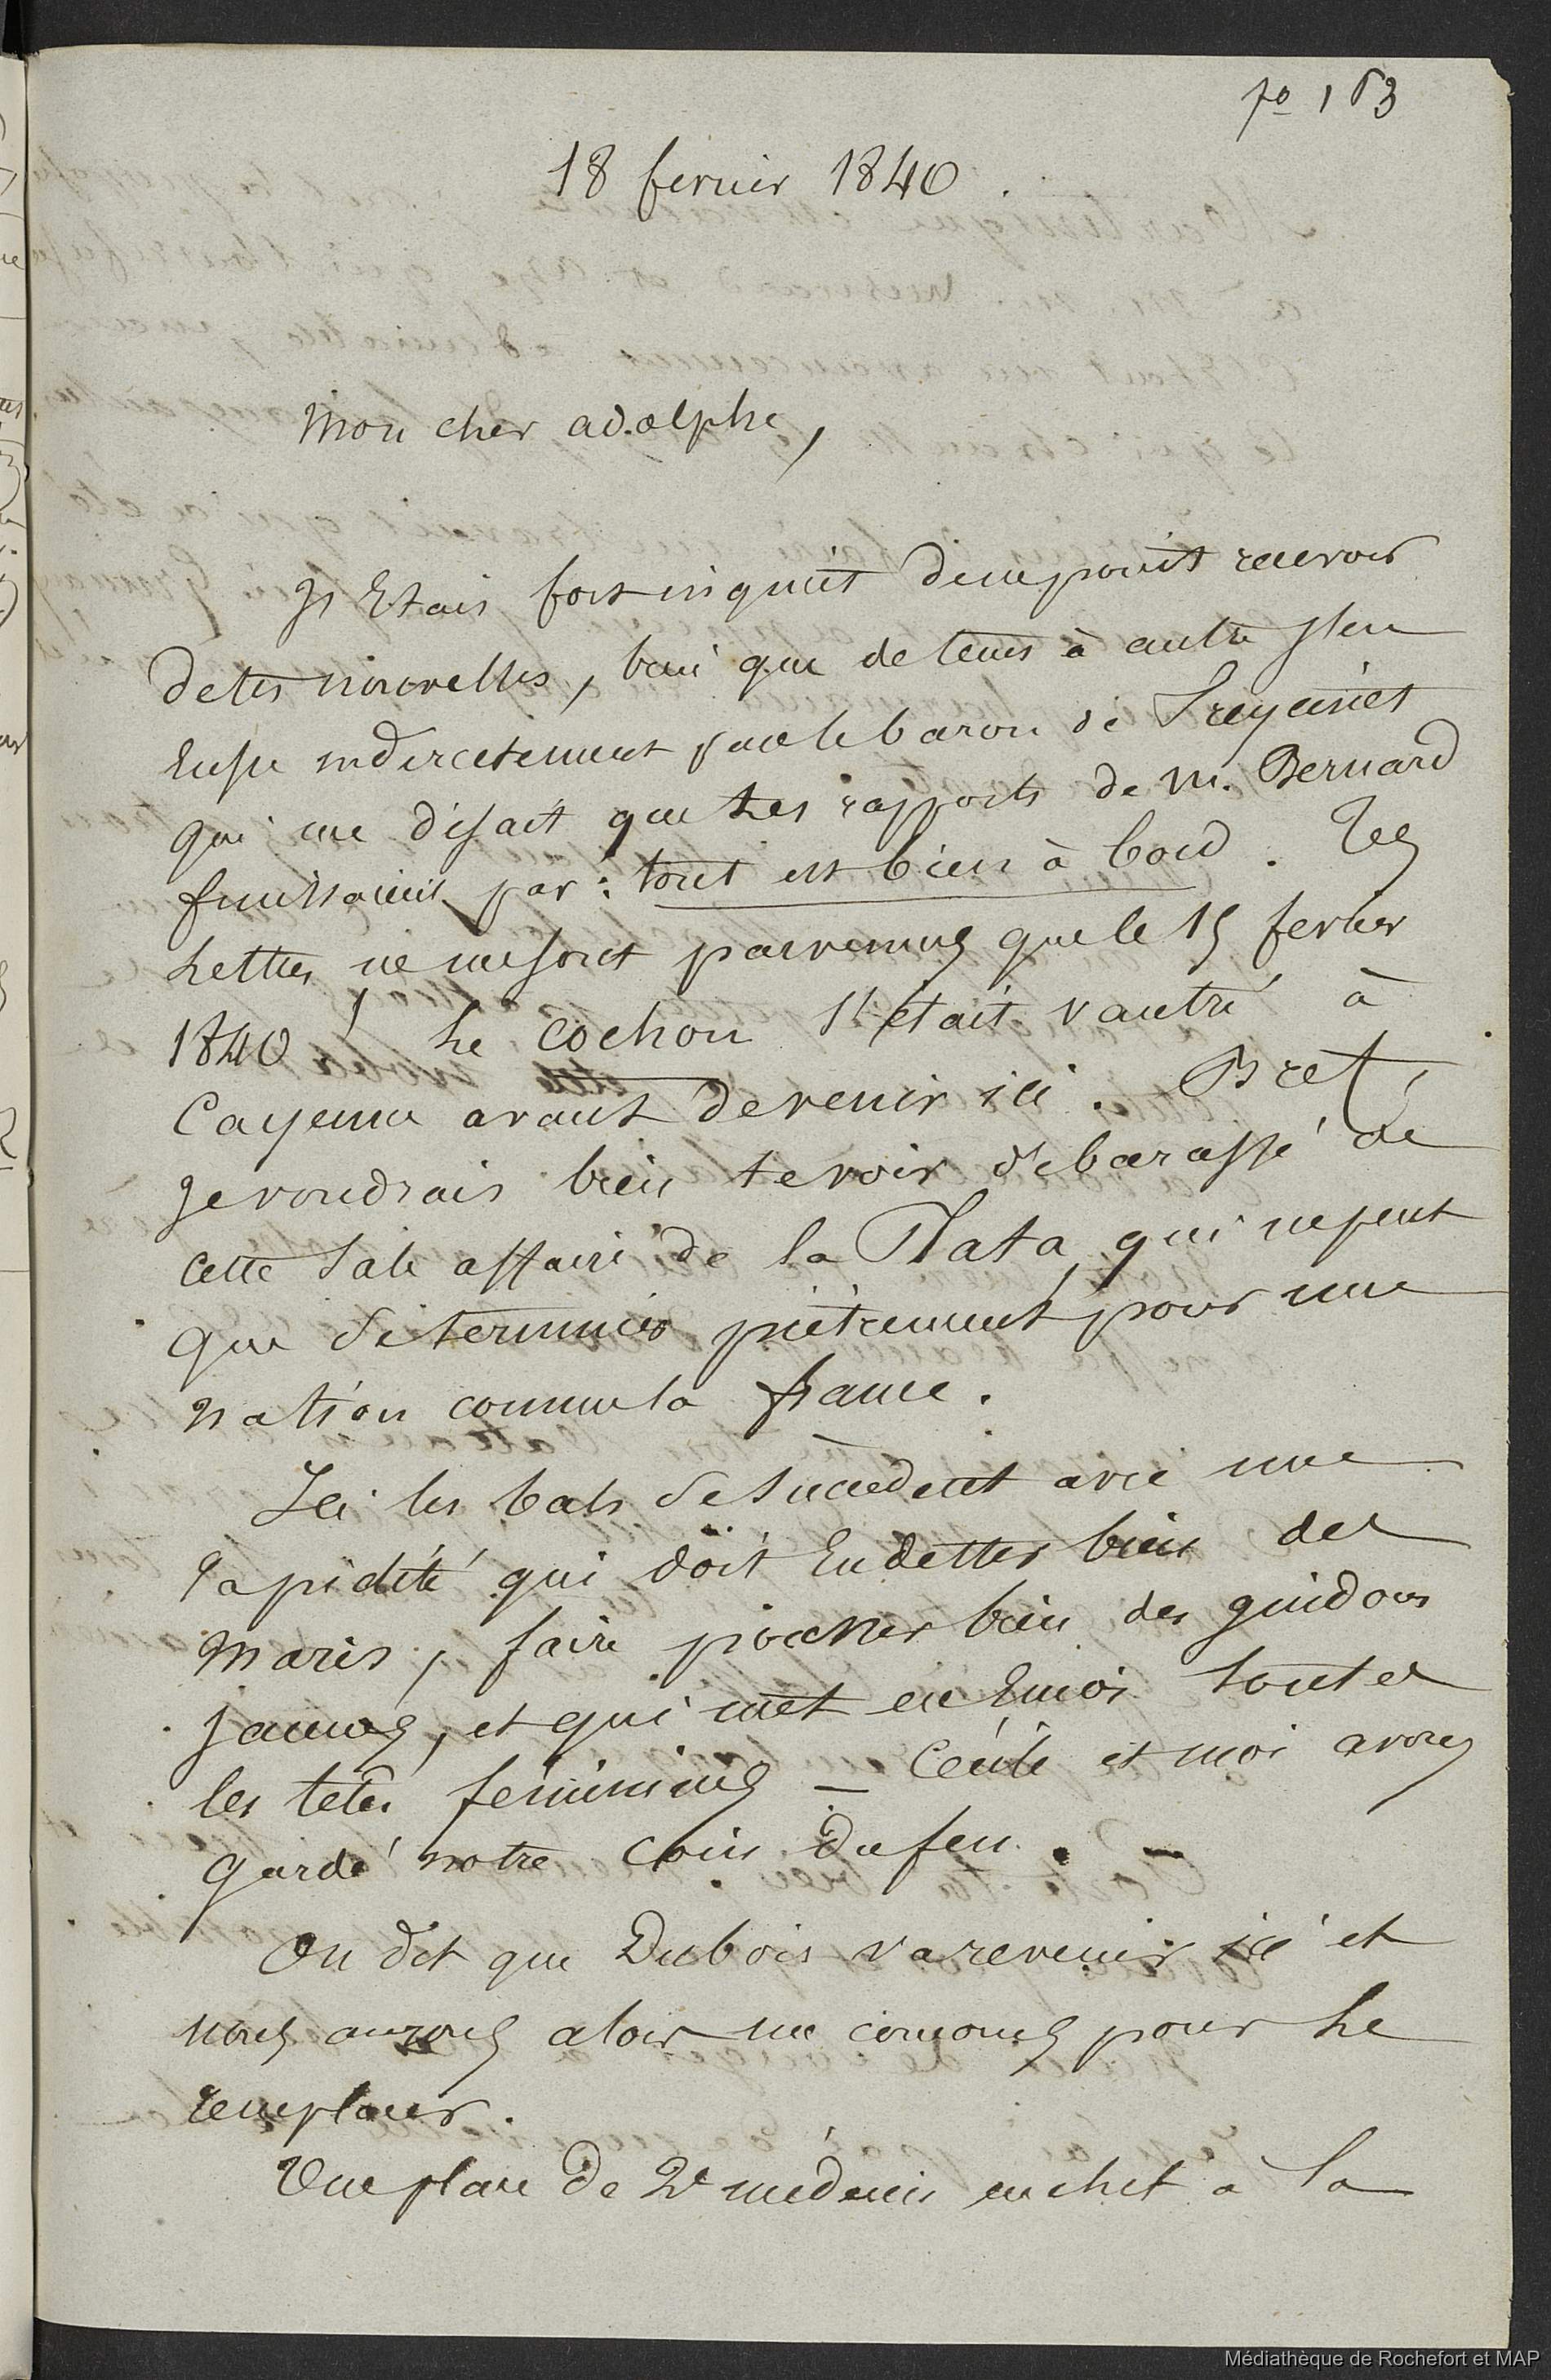 fo 163
18 fevrier 1840.
Mon cher adolphe,
Js Etais fort inquiet de ne point recevoir
de tes nouvelles, bien que de tems à autre j'en
Eusse indirectement par le baron de Freycinet
qui me disait que les rapports de M. Bernard
finissaient par : tout est bien à bord. Tes
lettres ne me sont parvenues que le 15 fevrier
1840 ! le cochon s'était vautré à
Cayenne avant de venir ici. Bref,
je voudrais bien te voir débarassé de
cette sale affaire de la Plata, qui ne peut
que se terminer piètrement pour une
nation comme la france.
Ici les bals se succedent avec une
rapidité qui doit Endetter bien des
maris, faire piocher bien des guidons
jaunes, et qui met en Emoi toutes
les tetes féminines – Cécile et moi avons
gardé notre coin du feu. –
On dit que Dubois va revenir ici et
nous aurons alors un concours pour le
remplacer.
Une place de 2e médecin en chef à la
Médiathèque de Rochefort et MAP